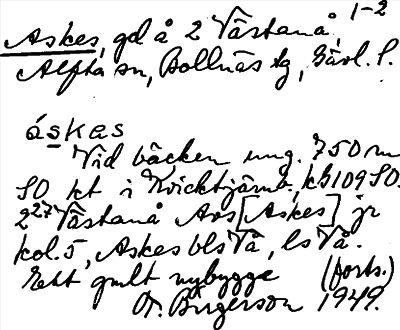 Askes, gd å 2 Västanå, 1-2
Alfta sn, Bollnäs tg, Gävl. l.
áskas
Vid bäcken ung. 750 m
SO kt i Kvicktjärnb., kb 109 SO.
2²⁷ Västanå Avs [Askes] jr
kol. 5, Askes bls Vå, ls Vå.
Ett gmlt nybygge (forts.)
F. Birgerson 1949.